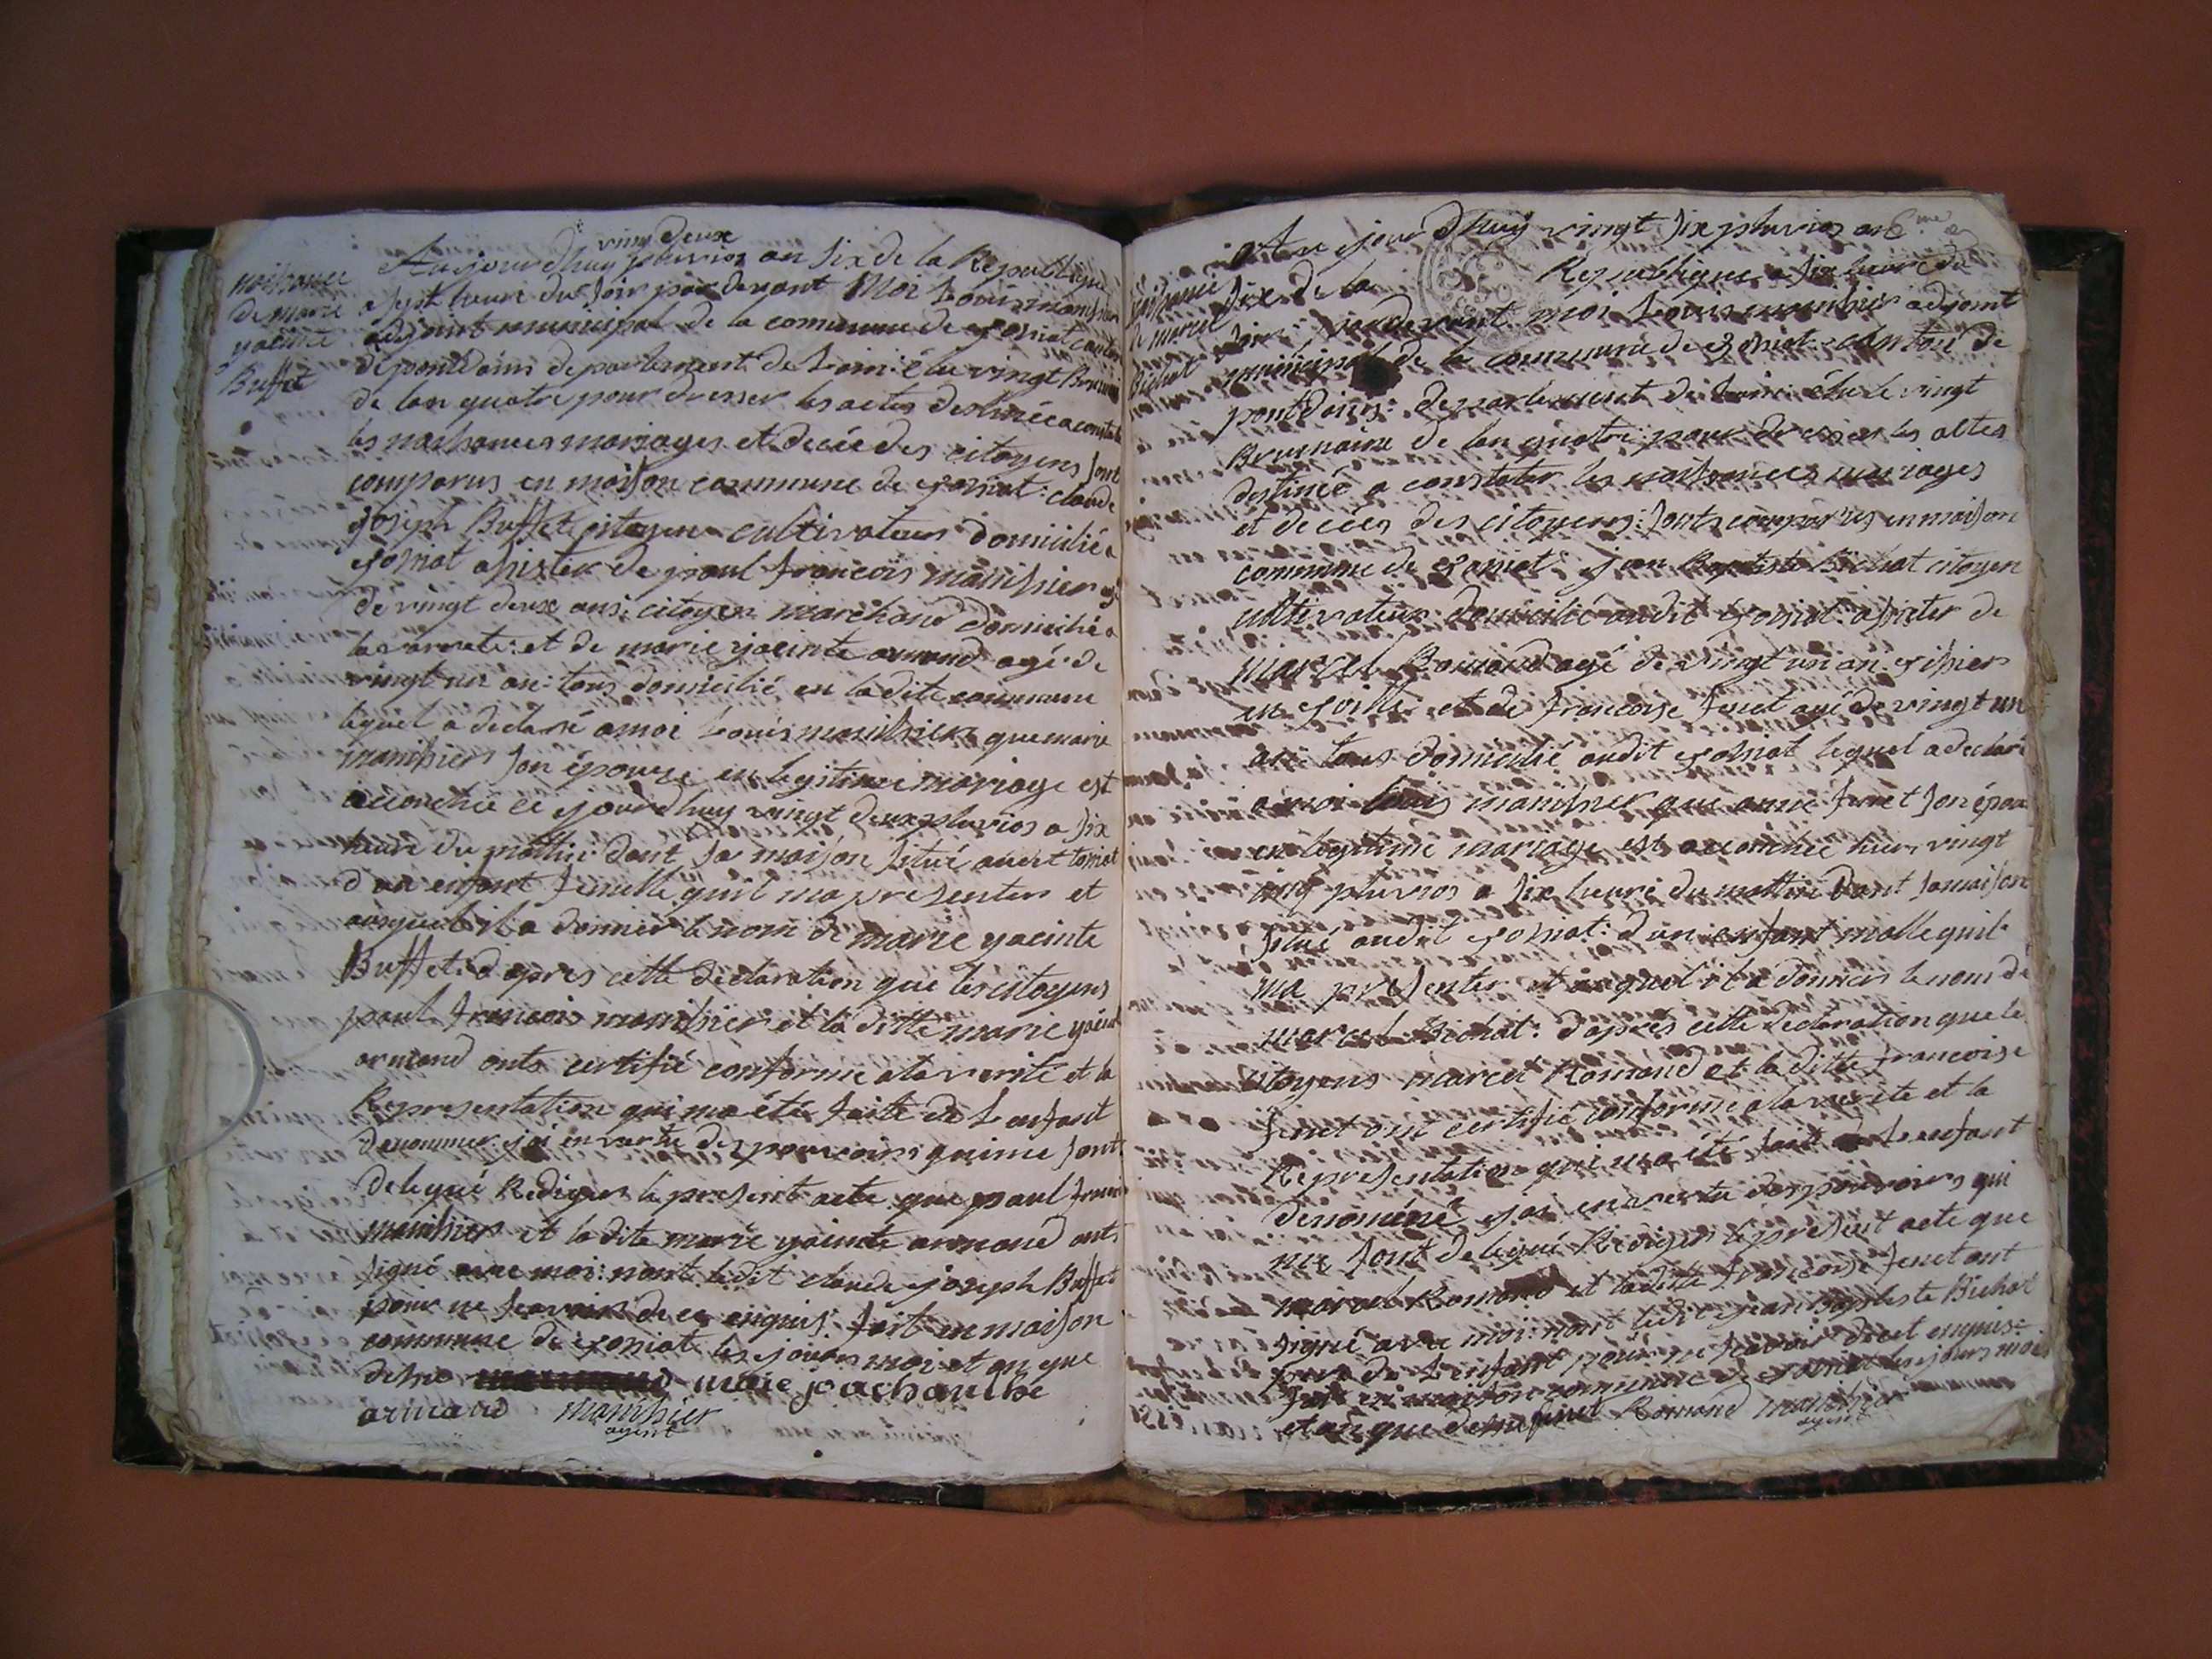 naissance
de marie
yacinte
Buffet
vingt deux
Aujourdhuy pluvios an six de la Republique
a sept heure du soir par devant Moi Louis manissier
adjoint municipal de la commune de canton
de pontdains departement de Lain élu le vingt Brumaire
de lan quatre pour dresser les actes destinée a constater
les naissances mariages et decée des citoyens sont
comparus en maison commune de claude
joseph Buffet citoyen cultivateur domicilié a
assister de paul francois manissier agé
de vingt deux ans citoyen marchand domicilié a
et de marie yacinte armand agé de
vingt un an: tous domicilié en la dite commune
lequel a declaré a moi Louis manissier que marie
manissier son épouse en legitime mariage est
accouchée ce jourdhuy vingt deux pluvios a six
heure du mattin dant sa maison situé
d un enfant femelle quil ma presenter et
auquel il a donner le nom de marie yacinte
Buffet: d apres cette declaration que les citoyens
paul francois manissier et la ditte marie yacinte
armand onts certifié conforme a la verité et la
Representation qui ma été faite de L enfant
denommer jai en vertu des pouvoirs qui me sont
delegué Rediger le present acte que paul francois
manissier et la dite marie yacinte armand onts
signé avec moi: nont ledit claude joseph Buffet
pour ne scavoir de ce enquis: fait en maison
commune de les jours moi et an que
dessu marie joachainthe
armand manissier
agent
naissance
de marcel
Bichat
Au jour dhuy vingt six pluvios an 6me
six de la Republique a six heure du
soir: pardevant moi Louis manissier adjoint
municipal de la commune de canton de
pontdains: departement de Lain: élu le vingt
Brumaire de lan quatre pour dresser les actes
destinée a constater les naissances mariages
et decées des citoyens: sonts comparus en maison
commune de jean Baptiste Bichat citoyen
cultivateur domicilié audit assister de
marcel Romand agé de vingt un an
et de francoise feret agé de vingt un
an: tous domicilié audit lequel a declaré
a moi Louis manissier que son épouse
en legitime mariage est accouchée hier vingt
cinq pluvios a six heure du mattin dant sa maison
situé audit d un enfant malle quil
ma presenter et auquel il a donner le nom de
marcel Bichat: dapres cette declaration que le
citoyens marcel Romand et la ditte francoise
ont certifié conforme a la verite et la
Representation qui ma été fait de L enfant
denommé jai en vertu des pouvoirs qui
me sont delegué Rediger le present acte que
marcel Romand et la ditte francoise ont
signé avec moi: nont ledit jean Baptiste Bichat
pere de L enfant pour ne scavoir de cet enquis:
fait en maison commune de les jours mois
et an que dessu Romand manissier
agent